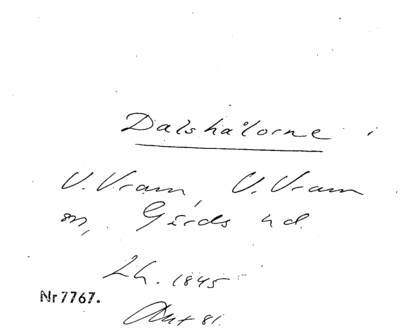 Dalshålorne i
V. Vram, V. Vram
sn, Gärds hd.
Lh. 1845
Nr 7767.
Akt 81.